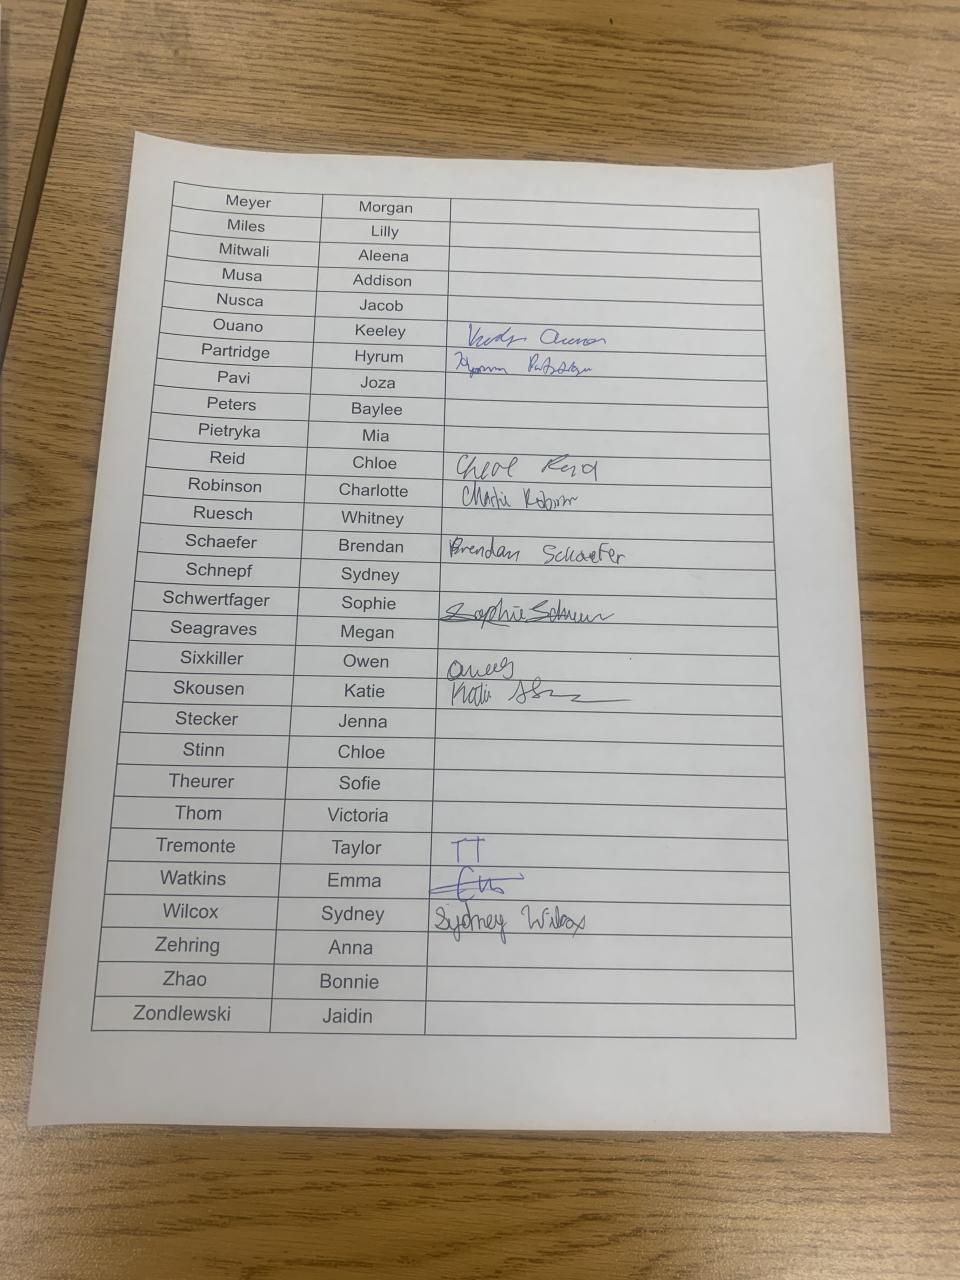 Meyer Morgan
Miles Lilly
Mitwali Aleena
Musa Addison
Nusca Jacob
Ouano Keeley
Partridge Hyrum
Pavi Joza
Peters Baylee
Pietryka Mia
Reid Chloe Chloe Reid
Robinson Charlotte Charlie Robinson
Ruesch Whitney
Schaefer Brendan Brendan Schaefer
Schnepf Sydney
Schwertfager Sophie Sophie
Seagraves Megan
Sixkiller Owen
Skousen Katie Katie
Stecker Jenna
Stinn Chloe
Theurer Sofie
Thom Victoria
Tremonte Taylor TT
Watkins Emma
Wilcox Sydney Sydney Wilcox
Zehring Anna
Zhao Bonnie
Zondlewski Jaidin